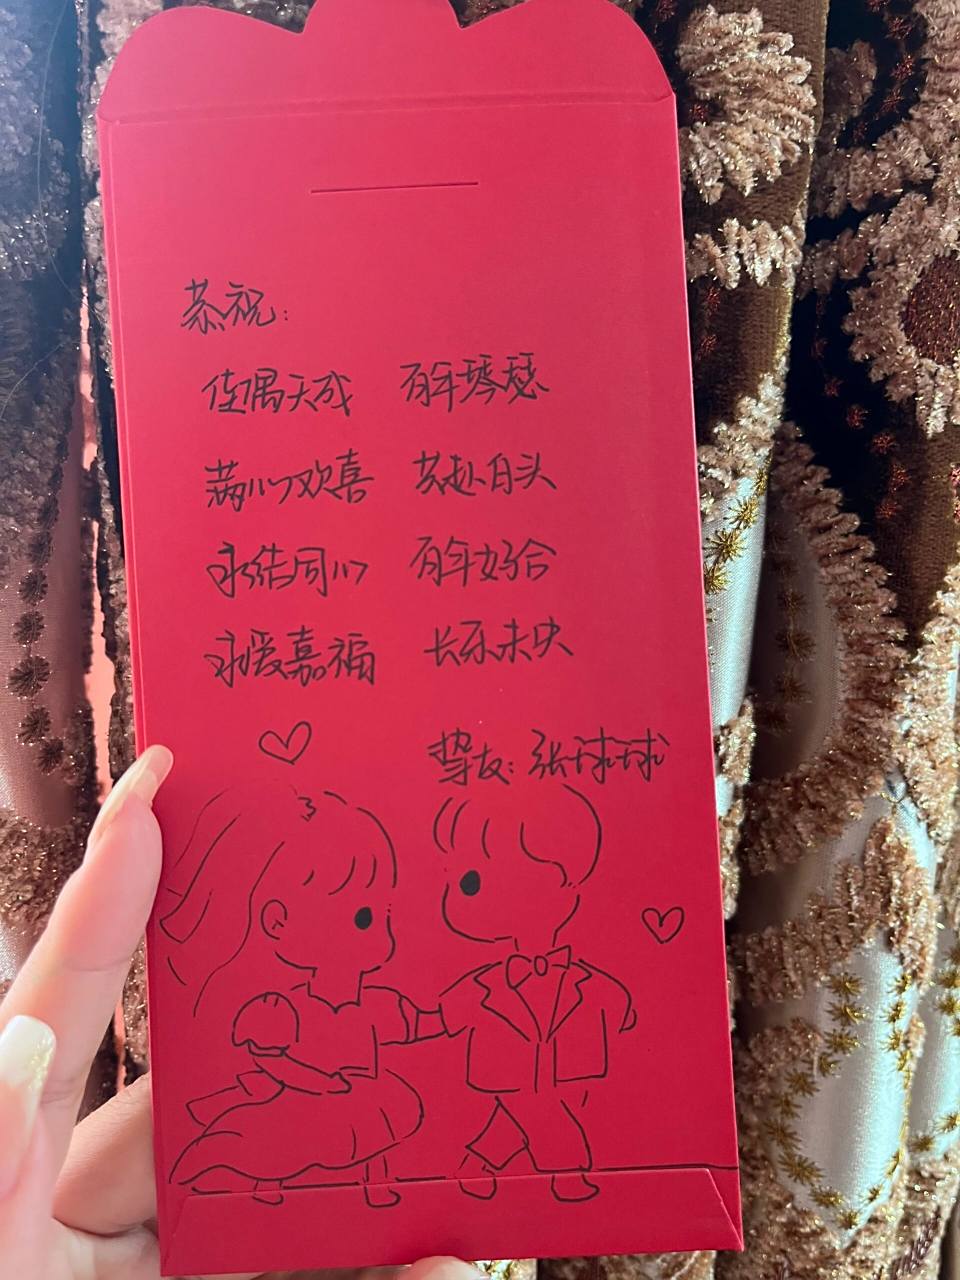 恭祝:
佳偶天成 百年琴瑟
满心欢喜 共赴白头
永结同心 百年好合
永爱嘉福 长乐未央
挚友: 张球球